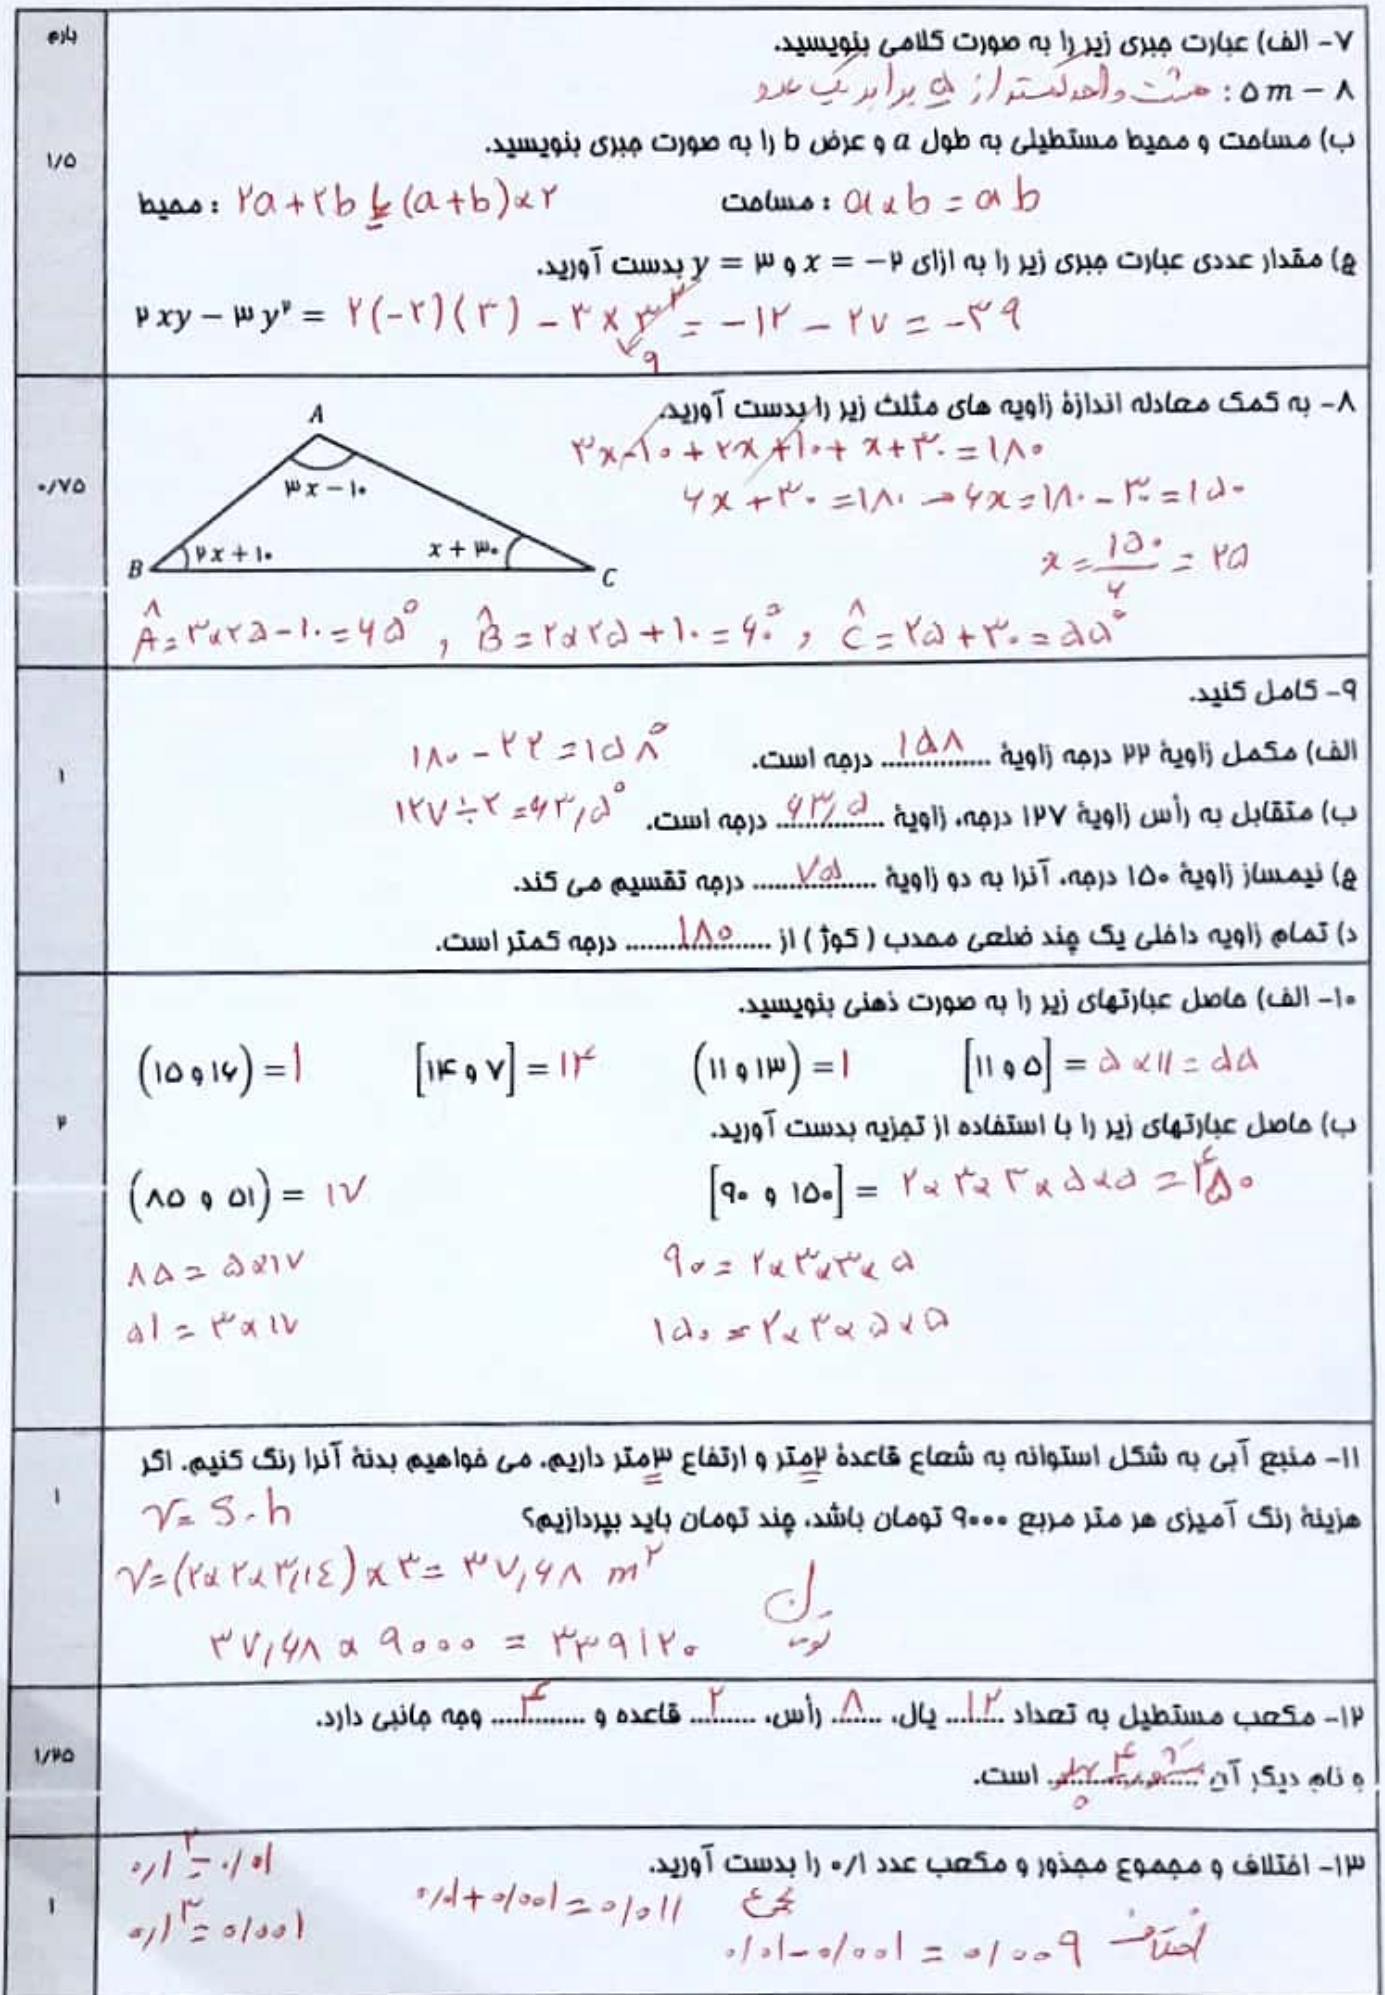 بارم
۷- الف) عبارت جبری زیر را به صورت کلامی بنویسید.
۵m − ۸ : هشت واحد کمتر از ۵ برابر یک عدد
۱/۵
ب) مساحت و محیط مستطیلی به طول a و عرض b را به صورت جبری بنویسید.
مساحت : a×b = ab
محیط : ۲a+۲b یا (a+b)×۲
ج) مقدار عددی عبارت جبری زیر را به ازای x = −۲ و y = ۳ بدست آورید.
۲xy − ۳y² = ۲(−۲)(۳) − ۳×۳² = −۱۲ − ۲۷ = −۳۹
۹
۸- به کمک معادله اندازهٔ زاویه های مثلث زیر را بدست آورید.
۳x−۱۰+۲x+۱۰+x+۳۰=۱۸۰
۰/۷۵
۶x+۳۰=۱۸۰ → ۶x=۱۸۰−۳۰=۱۵۰
x=۱۵۰/۶=۲۵
A
۳x−۱۰
B ۲x+۱۰ x+۳۰ C
Â=۳×۲۵−۱۰=۶۵° , B̂=۲×۲۵+۱۰=۶۰° , Ĉ=۲۵+۳۰=۵۵°
۹- کامل کنید.
۱
الف) مکمل زاویهٔ ۲۲ درجه زاویهٔ ....۱۵۸.... درجه است. ۱۸۰−۲۲=۱۵۸°
ب) متقابل به رأس زاویهٔ ۱۲۷ درجه، زاویهٔ ....۶۳٫۵.... درجه است. ۱۲۷÷۲=۶۳٫۵°
ج) نیمساز زاویهٔ ۱۵۰ درجه، آنرا به دو زاویهٔ ....۷۵.... درجه تقسیم می کند.
د) تمام زاویه داخلی یک چند ضلعی محدب ( کوژ ) از ....۱۸۰.... درجه کمتر است.
۱۰- الف) حاصل عبارتهای زیر را به صورت ذهنی بنویسید.
(۱۵ و ۱۶) = ۱ [۱۴ و ۷] = ۱۴ (۱۱ و ۱۳) = ۱ [۱۱ و ۵] = ۵×۱۱=۵۵
۲
ب) حاصل عبارتهای زیر را با استفاده از تجزیه بدست آورید.
(۸۵ و ۵۱) = ۱۷ [۹۰ و ۱۵۰] = ۲×۳×۳×۵×۵=۴۵۰
۸۵=۵×۱۷ ۹۰=۲×۳×۳×۵
۵۱=۳×۱۷ ۱۵۰=۲×۳×۵×۵
۱۱- منبع آبی به شکل استوانه به شعاع قاعدهٔ ۲متر و ارتفاع ۳متر داریم. می خواهیم بدنهٔ آنرا رنگ کنیم. اگر
۱
هزینهٔ رنگ آمیزی هر متر مربع ۹۰۰۰ تومان باشد، چند تومان باید بپردازیم؟
V=S·h
V=(۲×۲×۳٫۱۴)×۳=۳۷٫۶۸ m²
۳۷٫۶۸×۹۰۰۰=۳۳۹۱۲۰ تومان
۱۲- مکعب مستطیل به تعداد ....۱۲.... یال، ....۸.... رأس، ....۲.... قاعده و ....۴.... وجه جانبی دارد.
۱/۲۵
و نام دیگر آن ....منشور ۴ پهلو.... است.
۱۳- اختلاف و مجموع مجذور و مکعب عدد ۰/۱ را بدست آورید.
۰/۱²=۰/۰۱
۱
۰/۱³=۰/۰۰۱
مجموع ۰/۰۱+۰/۰۰۱=۰/۰۱۱
اختلاف ۰/۰۱−۰/۰۰۱=۰/۰۰۹